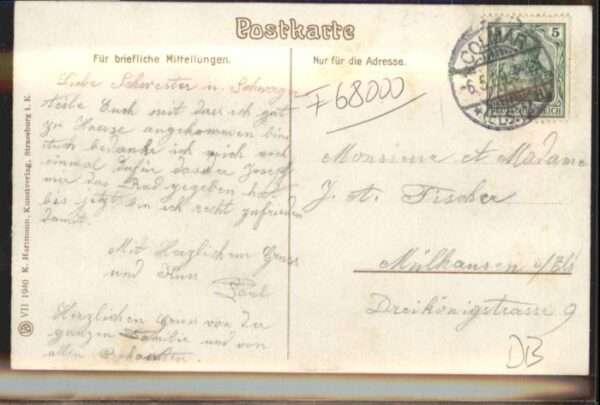 Postkarte
Für briefliche Mitteilungen.
Nur für die Adresse.
COLMAR
5
Liebe Schwester u. Schwager
Teile Euch mit dass ich gut
zu Hause angekommen bin
bedanke ich mich noch
einmal dafür dass der Josef
mir das Rad gegeben hat
bis jetzt bin ich recht zufrieden
damit.
Mit Herzlichem Gruss
und Kuss
Paul
Herzlichen Gruss von der
ganzen Familie und von
allen
F68000
Monsieur et Madame
J. A. Fischer
Mülhausen i/Els
Dreikönigstrasse 9
DB
VII 1940 K. Hartmann, Kunstverlag, Strassburg i. E.